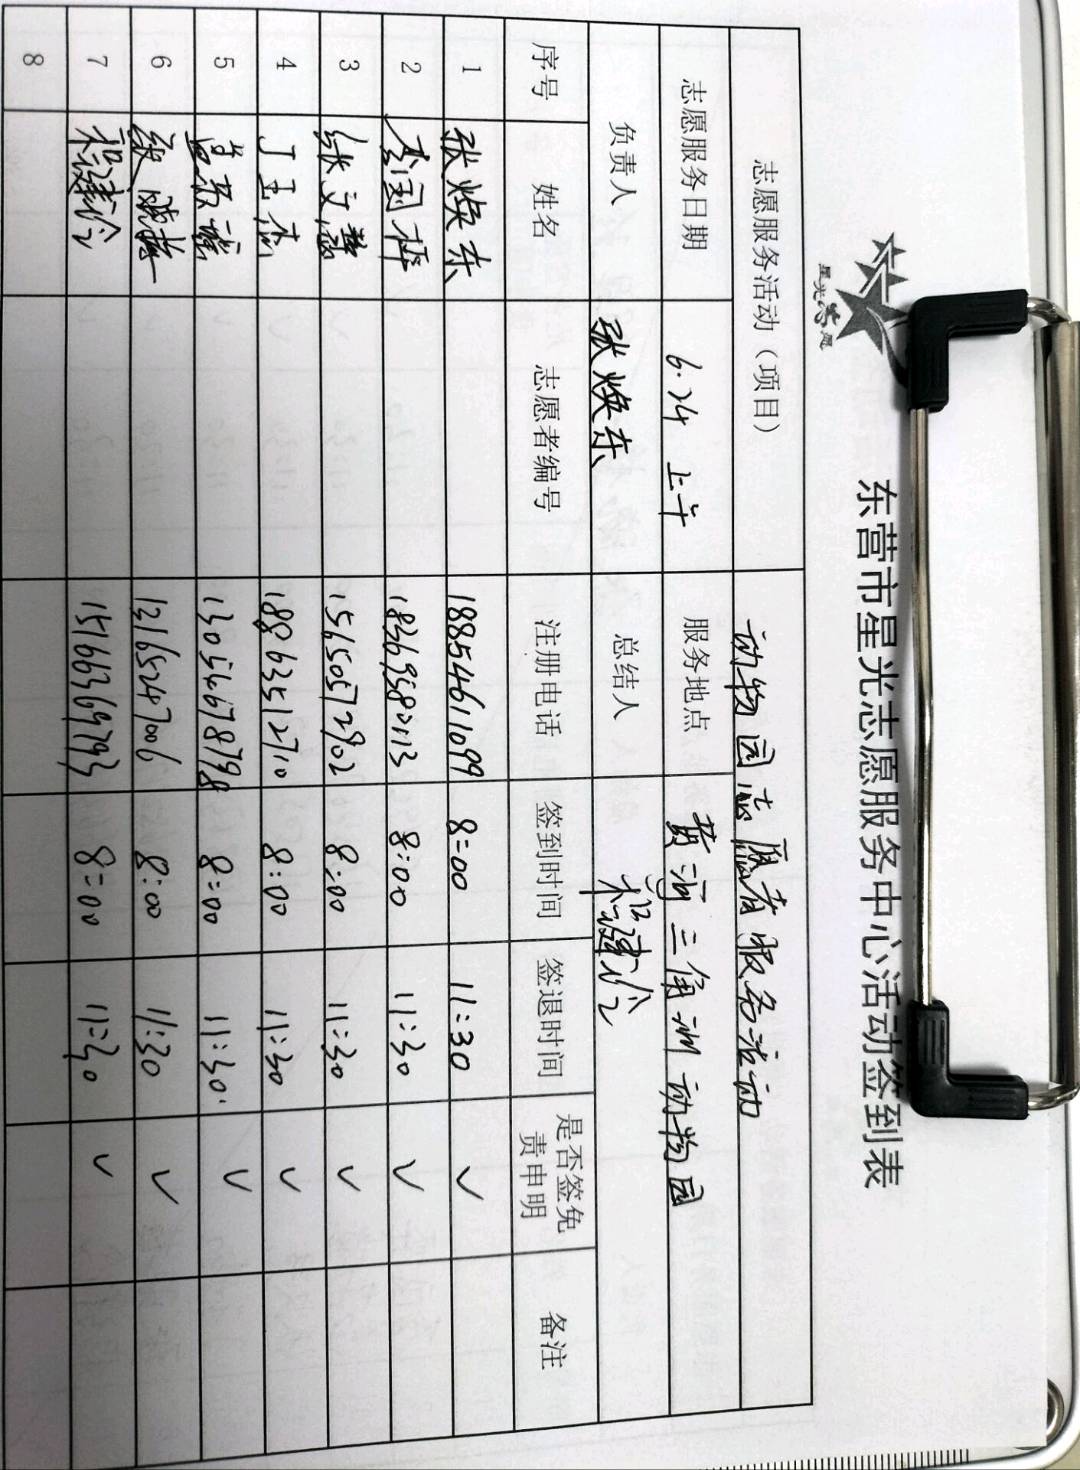 东营市星光志愿服务中心活动签到表
志愿服务活动（项目） 动物园志愿者服务活动
志愿服务日期 6.24 上午 服务地点 黄河三角洲动物园
负责人 张焕东 总结人
序号 姓名 志愿者编号 注册电话 签到时间 签退时间 是否签免责申明 备注
1 张焕东 18854611099 8:00 11:30 ✓
2 李国梓 8:00 11:30 ✓
3 张文 15650572902 8:00 11:30 ✓
4 丁玉杰 18863512710 8:00 11:30 ✓
5 13054678798 8:00 11:30 ✓
6 13165247006 8:00 11:30 ✓
7 15166369793 8:00 11:30 ✓
8